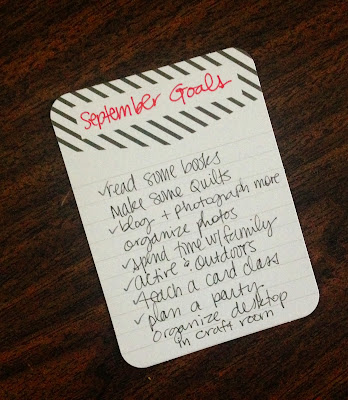 September Goals
✓read some books
Make some Quilts
✓blog + photograph more
organize photos
✓spend time w/family
✓active & Outdoors
✓teach a card class
✓plan a party
Organize desktop
in craft room